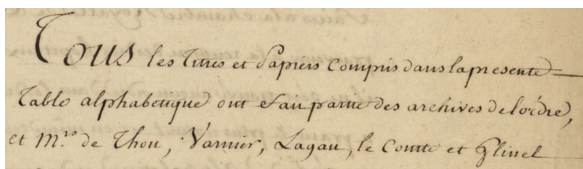 Tous les Titres et Papiers compris dans la presente
Table alphabetique ont fait partie des archives de l'ordre,
et Mrs de Thou, Varnier, Lagau, le Comte et